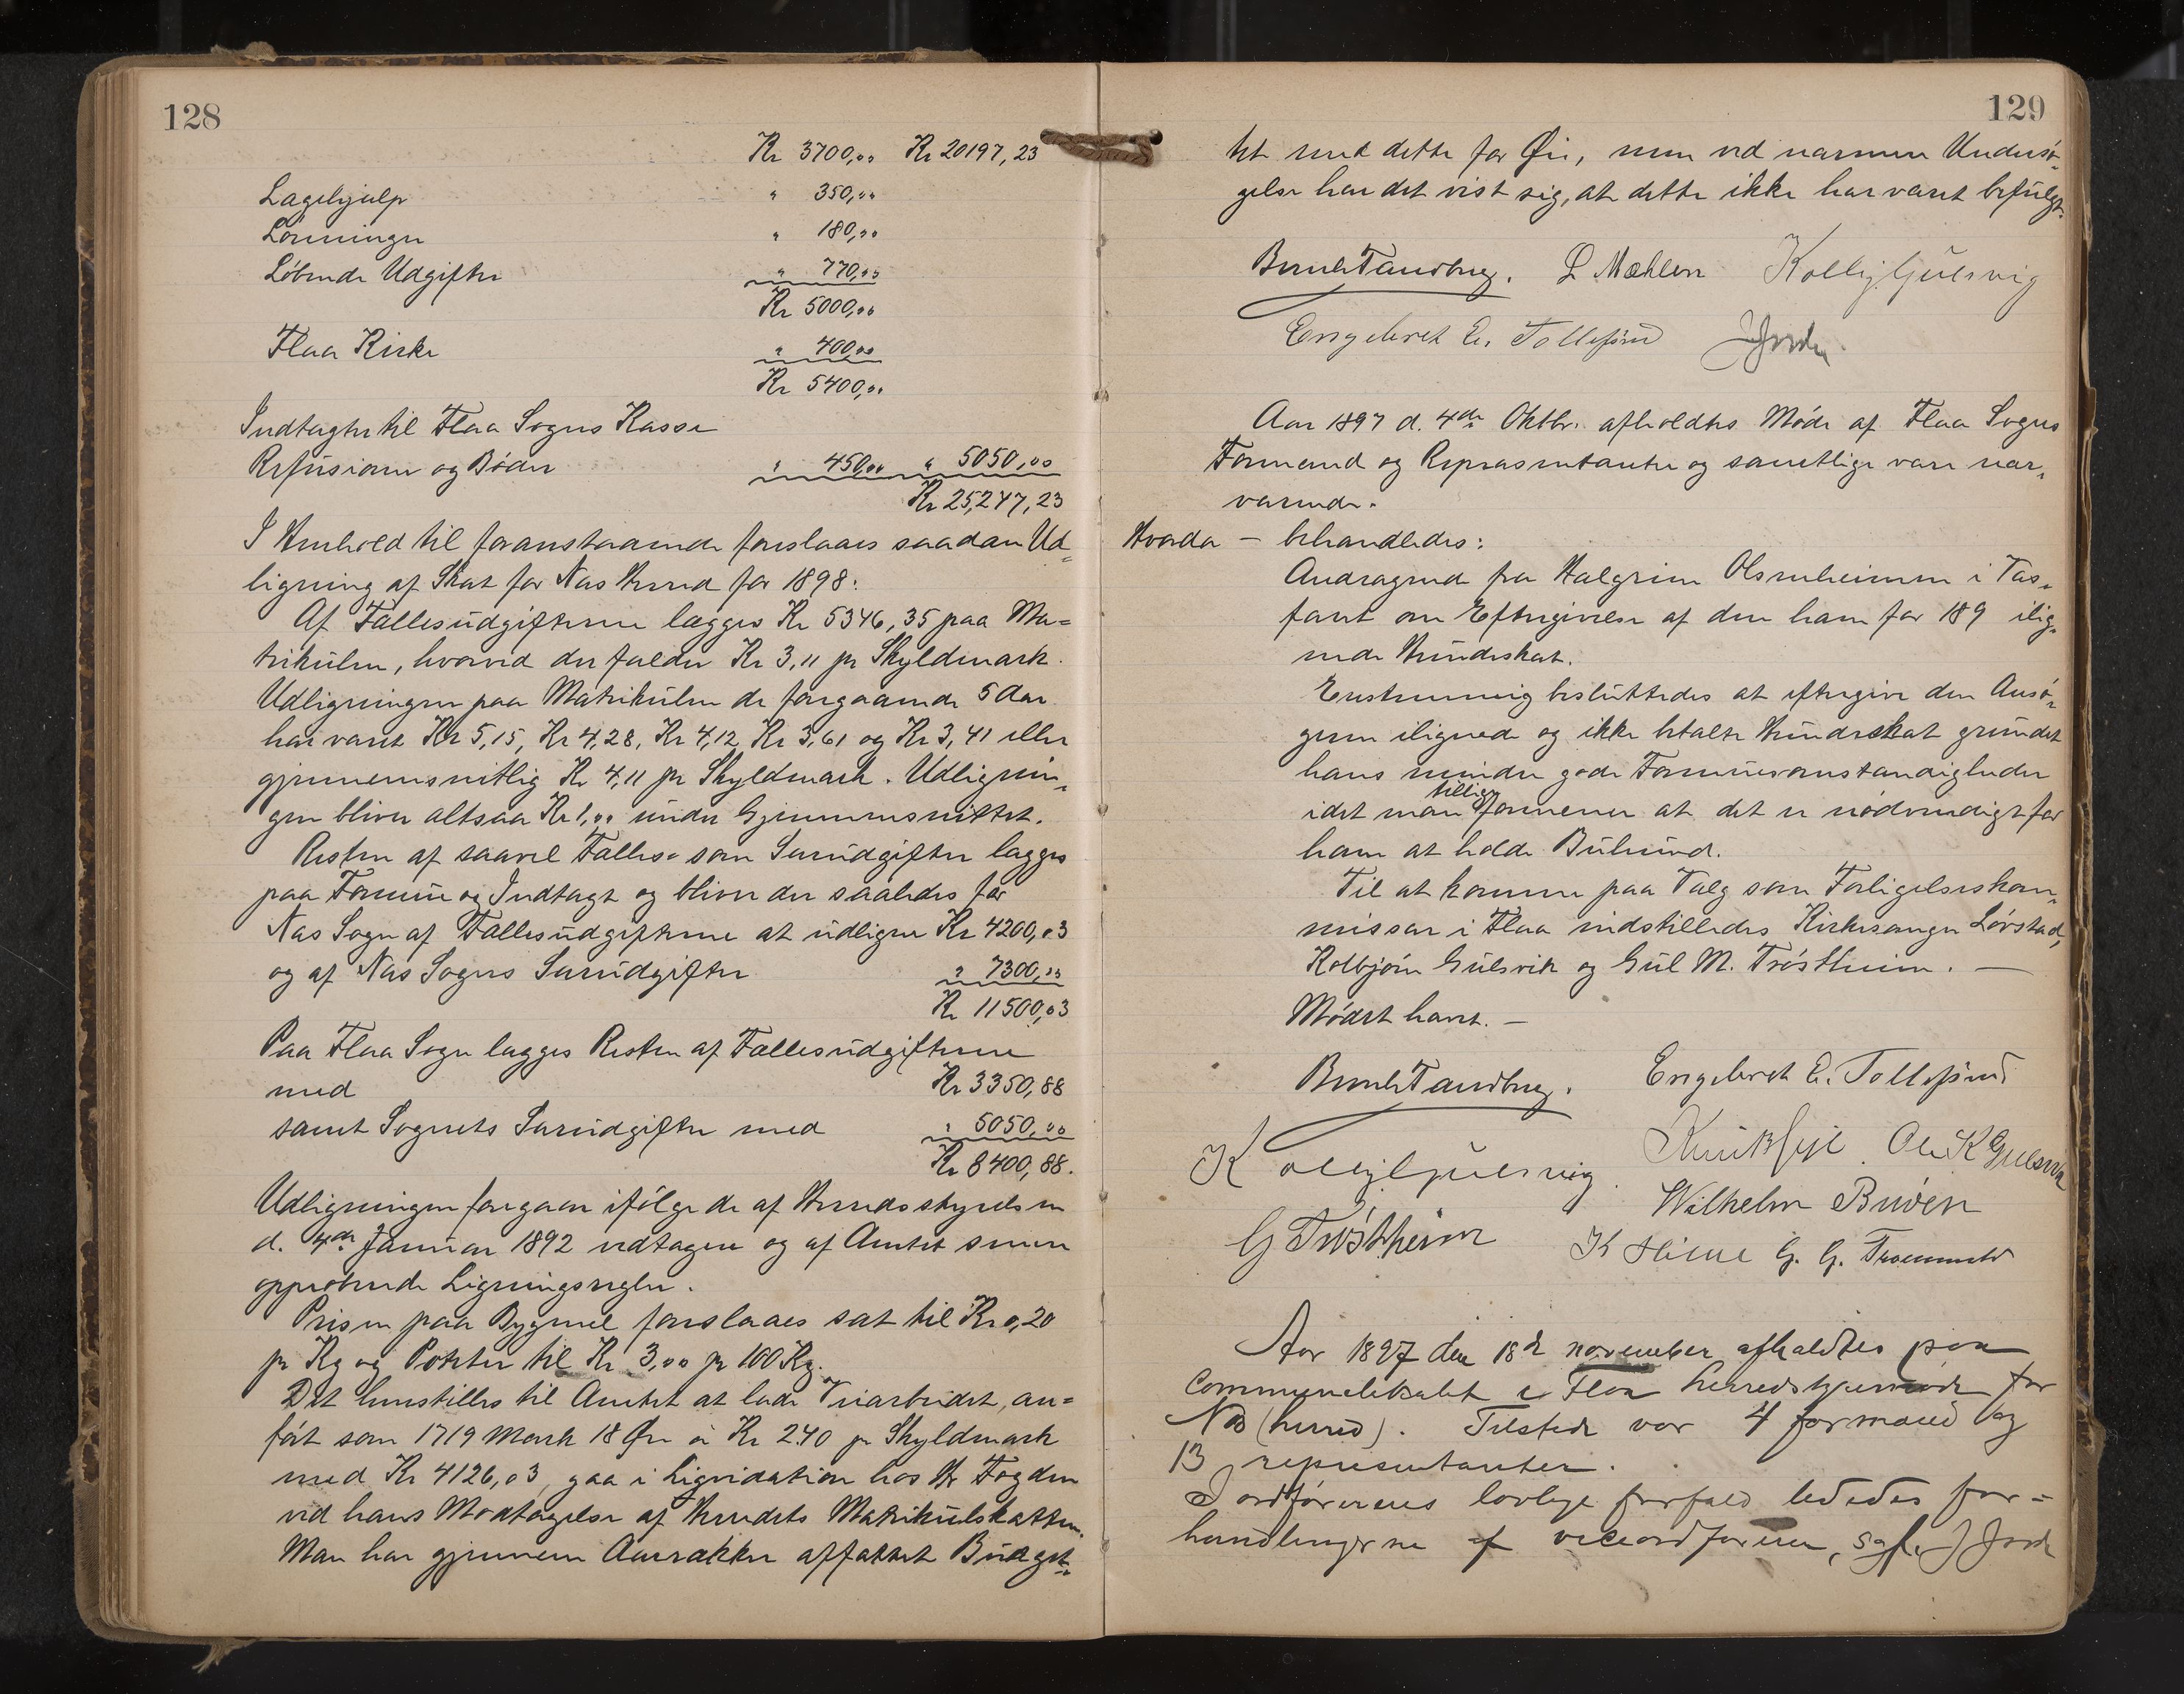 128
Kr 3700,00 Kr 20197,23
Lægehjælp " 350,00
Lønninger " 180,00
Løbende Udgifter " 770,00
Kr 5000,00
Flaa Kirke " 400,00
Kr 5400,00
Indtægter til Flaa Sogns Kasse
Refusioner og Bøder " 450,00 " 5050,00
Kr 25,247,23
I Henhold til foranstaaende foreslaaes saadan Ud=
ligning af Skat for Næs Herred for 1898:
Af Fællesudgifterne lægges Kr 5346,35 paa Ma=
trikulen, hvorved der falder Kr 3,11 pr Skyldmark.
Udligningen paa Matrikulen de foregaaende 5 Aar
har været Kr 5,15, Kr 4,28, Kr 4,12, Kr 3,61 og Kr 3,41 eller
gjennemsnitlig Kr 4,11 pr Skyldmark. Udlignin=
gen bliver altsaa Kr 1,00 under Gjennemsnittet.
Resten af saavel Fælles- som Særudgifter lægges
paa Formue og Indtægt og bliver der saaledes for
Næs Sogn af Fællesudgifterne at udligne Kr 4200,03
og af Næs Sogns Særudgifter " 7300,00
Kr 11500,03
Paa Flaa Sogn lægges Resten af Fællesudgifterne
med Kr 3350,88
samt Sognets Særudgifter med " 5050,00
Kr 8400,88.
Udligningen foregaar ifølge de af Herredsstyrelsen
d. 4de Januar 1892 vedtagne og af Amtet senere
approberede Ligningsregler.
Prisen paa Bygmel foreslaaes sat til Kr 0,20
pr Kg og Poteter til Kr 3,00 pr 100 Kg.
Det henstilles til Amtet at lade Veiarbeidet, an=
ført som 1719 Mark 18 Øre à Kr 2.40 pr Skyldmark
med Kr 4126,03, gaa i Ligvidation hos Hr Fogden
ved hans Modtagelse af Herredets Matrikulskatten.
Man har gjennem Aarrækker affattet Budget=
129
tet med dette for Øie, men ved nærmere Undersø=
gelse har det vist sig, at dette ikke har været befulgt.
Bernh Tandberg. L Mæhlen Kolbj. Gulsvig
Engebret E. Tollefsrud J Jorde.
Aar 1897 d. 4de Oktbr. afholdtes Møde af Flaa Sogns
Formænd og Repræsentanter og samtlige vare nær=
værende.
Hvorda – behandledes:
Andragende fra Halgrim Olsenheimen i Tas=
faret om Eftergivelse af den ham for 189 ilig=
nede Hundeskat.
Enstemmig besluttedes at eftergive den Ansø=
geren ilignede og ikke betalte Hundeskat grundet
hans mindre gode Formuesomstændigheder
idet man tillige formener at det er nødvendigt for
ham at holde Buhund.
Til at komme paa Valg som Forligelseskom=
missær i Flaa indstilledes Kirkesanger Løvstad,
Kolbjørn Gulsvik og Gul M. Trøstheim. –
Mødet hævet. –
Bernh Tandberg. Engebret E. Tollefsrud
K olbj Gulsvig. Knut Seje. Ole K Gulsvik
Wilhelm Buven
G Trøstheim K Hieme G. G. Trommald
Aar 1897 den 18de november afholdtes paa
Communelokalet i Flaa herredstyremøde for
Næs (herred). Tilstede var 4 formænd og
13 representanter.
I ordførerens lovlige forfald lededes for=
handlingerne af viceordføreren, sgf. J Jorde